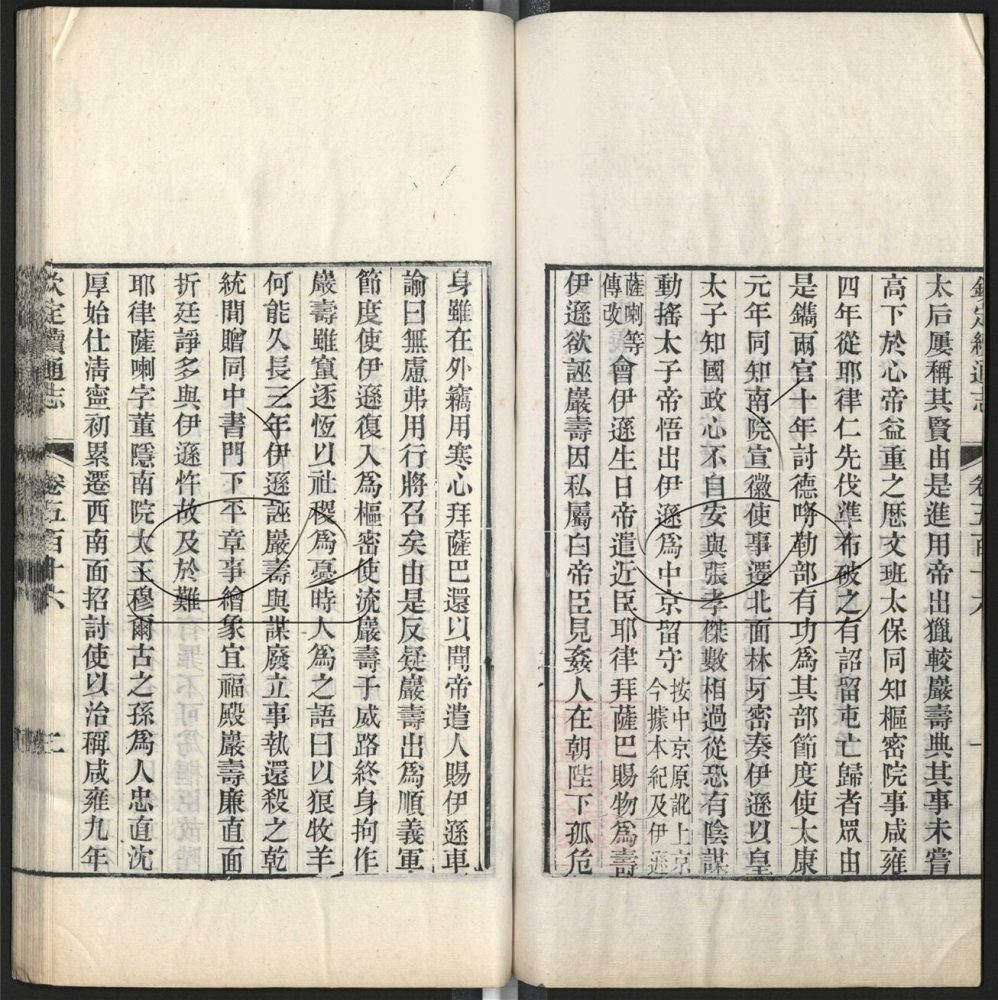 太后屢稱其賢由是進用帝出獵較巖壽典其事未嘗
高下於心帝益重之歷文班太保同知樞密院事咸雍
四年從耶律仁先伐準布破之有詔留屯亡歸者眾由
是鐫兩官十年討德哷勒部有功爲其部節度使太康
元年同知南院宣徽使事遷北面林牙密奏伊遜以皇
太子知國政心不自安與張孝傑數相過從恐有陰謀
動搖太子帝悟出伊遜爲中京留守按中京原訛上京今據本紀及伊遜
薩喇等傳改會伊遜生日帝遣近臣耶律拜薩巴賜物爲壽
伊遜欲誣巖壽因私屬白帝臣見姦人在朝陛下孤危
身雖在外竊用寒心拜薩巴還以聞帝遣人賜伊遜車
諭曰無慮弗用行將召矣由是反疑巖壽出爲順義軍
節度使伊遜復入爲樞密使流巖壽于威路終身拘作
巖壽雖竄逐恆以社稷爲憂時人爲之語曰以狼牧羊
何能久長三年伊遜誣巖壽與謀廢立事執還殺之乾
統間贈同中書門下平章事繪象宜福殿巖壽廉直面
折廷諍多與伊遜忤故及於難
耶律薩喇字董隱南院大王穆爾古之孫爲人忠直沈
厚始仕淸寧初累遷西南面招討使以治稱咸雍九年
欽定續通志 卷五百十六 二